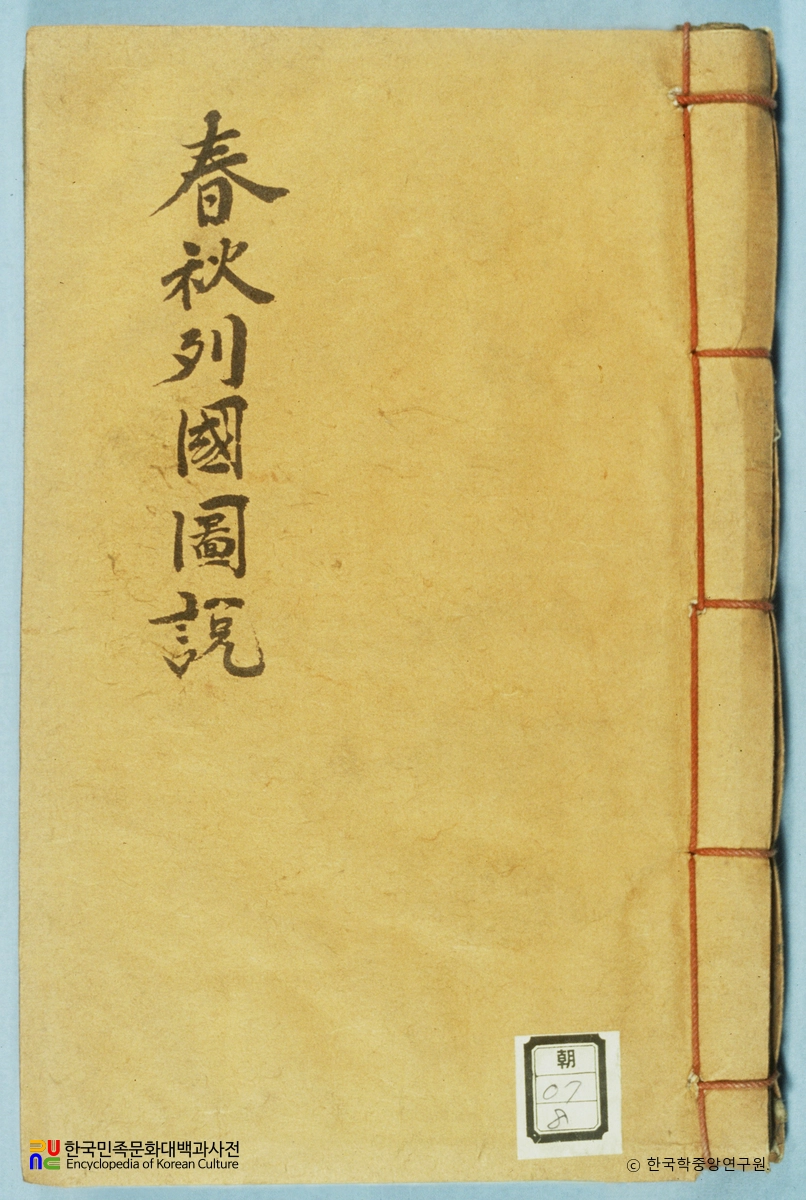 春秋列國圖說
朝
07
8
한국민족문화대백과사전
Encyclopedia of Korean Culture
ⓒ 한국학중앙연구원